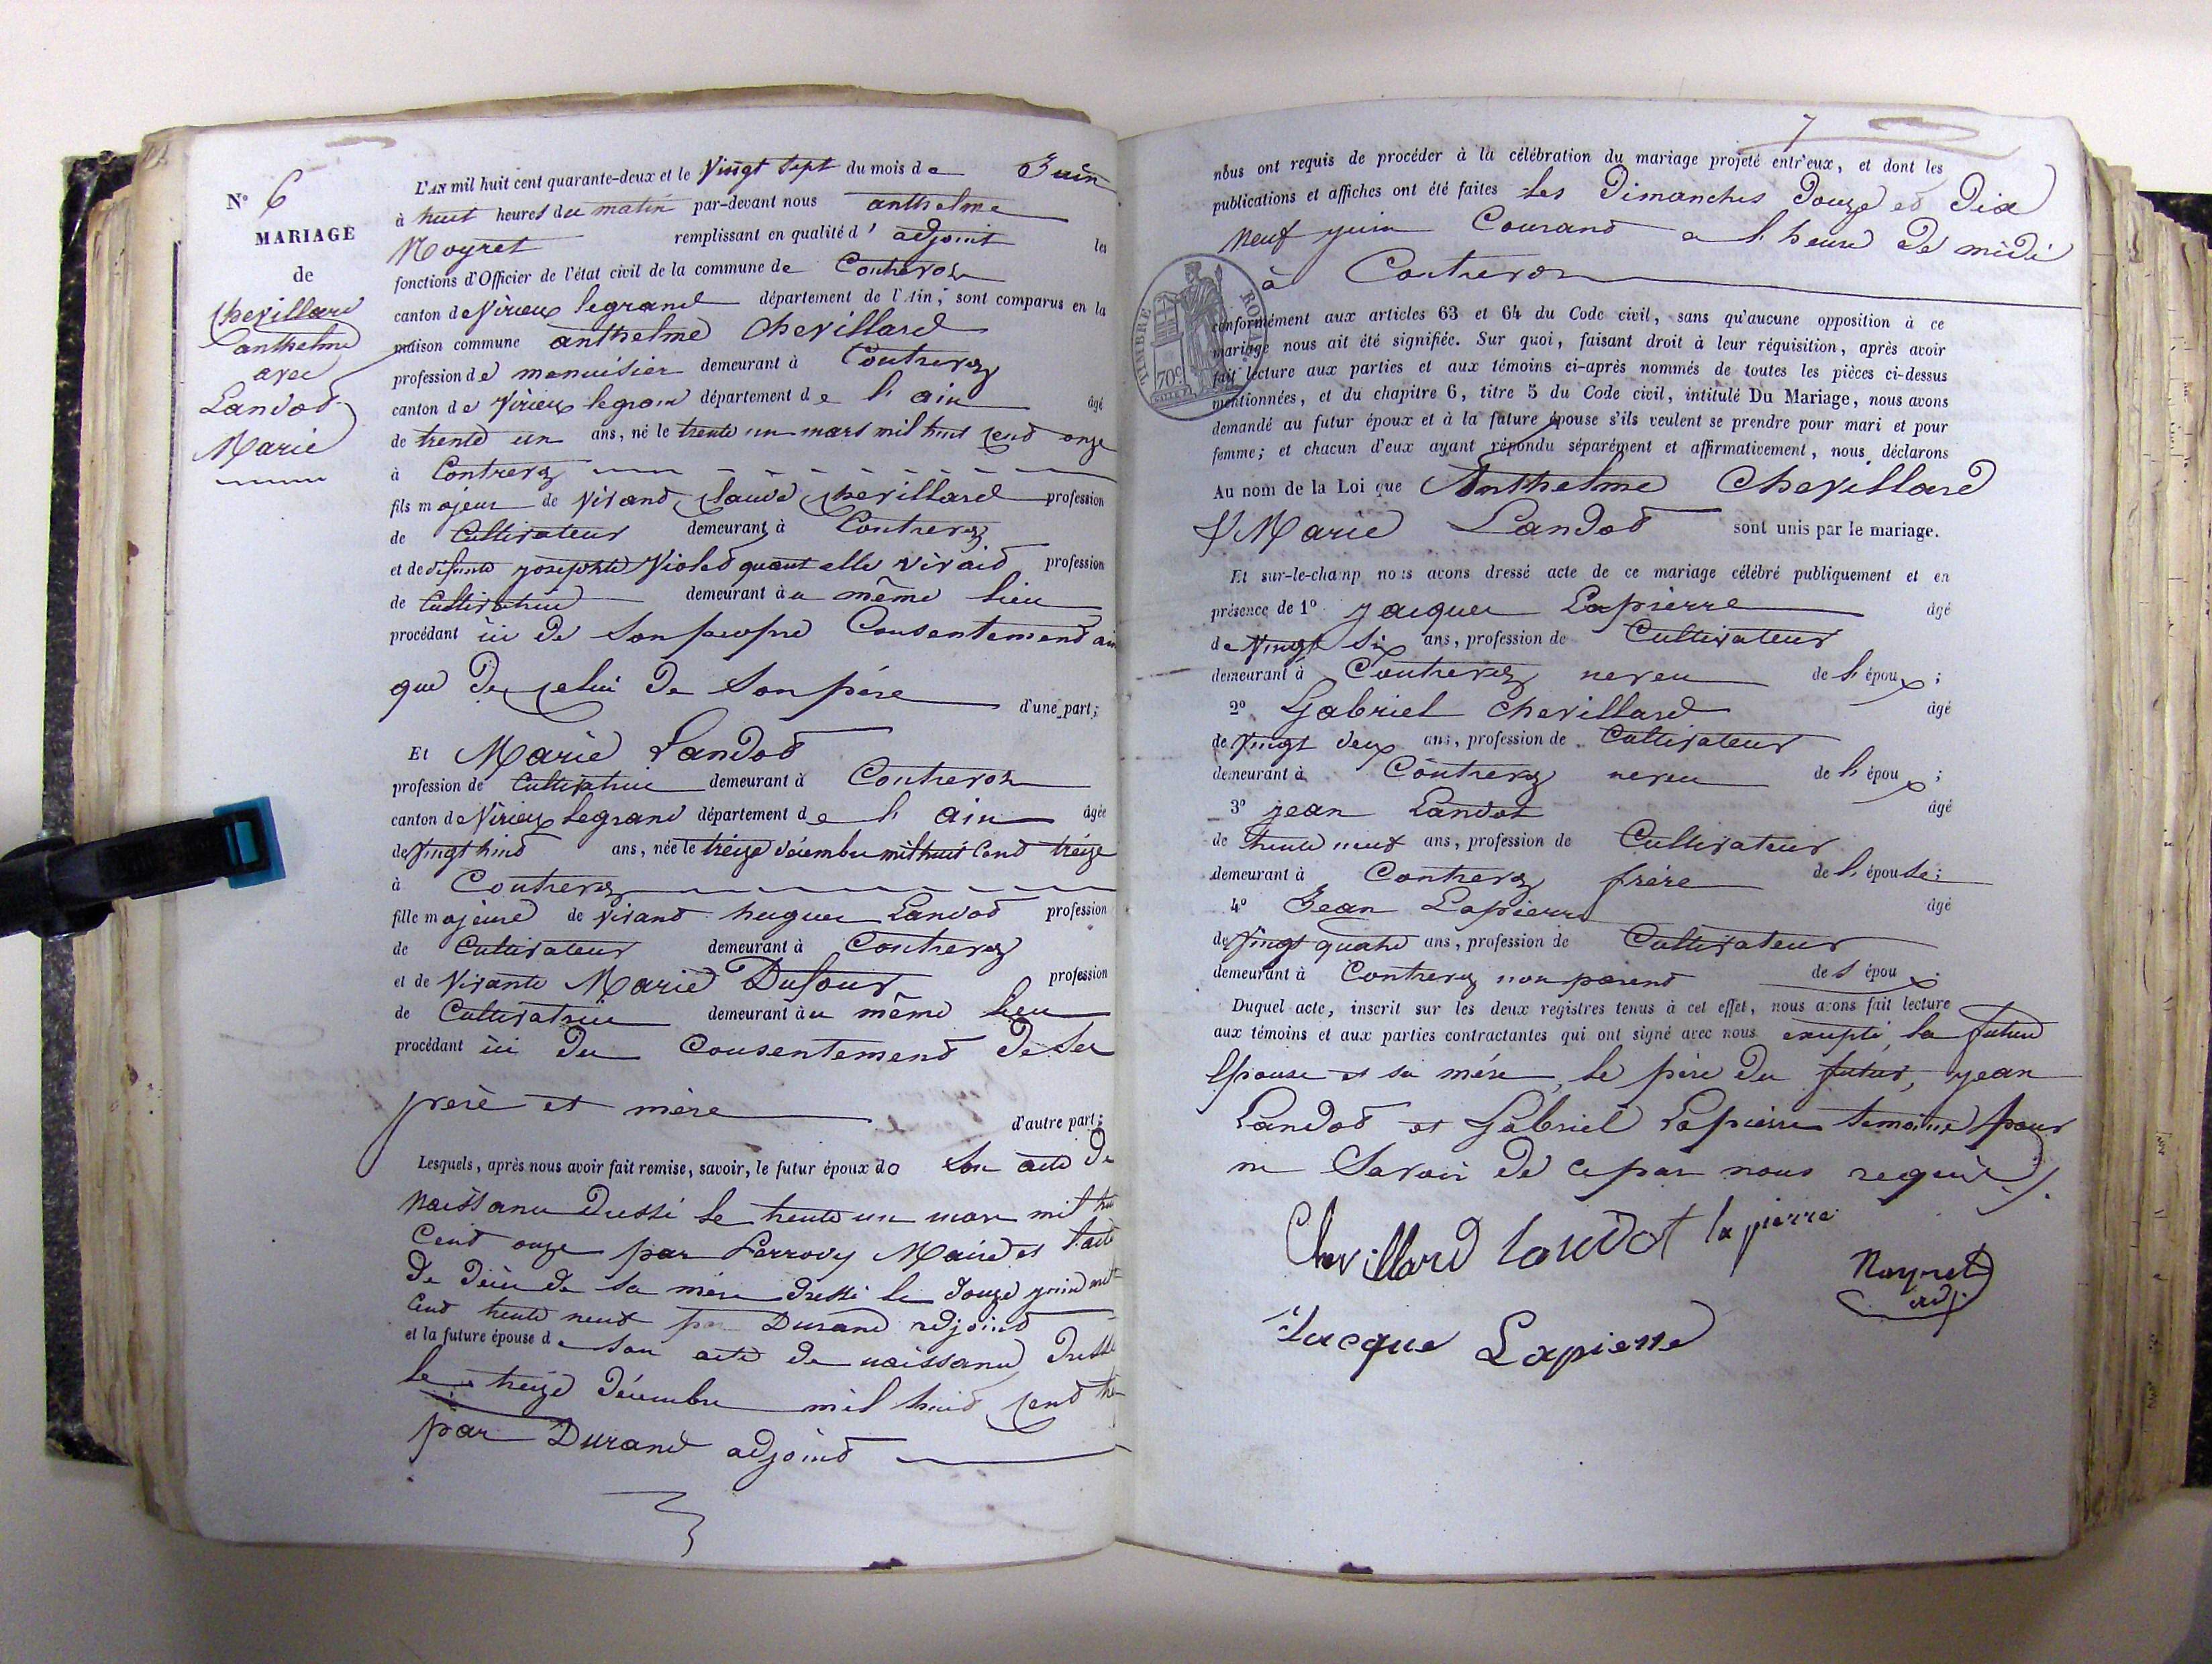 N° 6
MARIAGE
de
Chevillard
anthelme
avec
Landod
Marie
L'AN mil huit cent quarante-deux et le Vingt Sept du mois de Juin
à huit heures du matin par-devant nous anthelme
Moyret remplissant en qualité d' adjoint les
fonctions d'Officier de l'état civil de la commune de Contrevoz
canton de Virieux legrand département de l'Ain; sont comparus en la
maison commune anthelme Chevillard
profession de menuisier demeurant à Contrevoz
canton de Virieux legrand département de l'ain âgé
de trente un ans, né le trente un mars mil huit cend onze
à Contrevoz
fils majeur de Vivand Claude Chevillard profession
de Cultivateur demeurant à Contrevoz
et de défunte josephte Violed quant elle vivaid profession
de Cultivatrice demeurant au même lieu
procédant ici de Son propre Consentemend ain
que de celui de Son père d'une part;
Et Marie Landod
profession de Cultivatrice demeurant à Contrevoz
canton de Virieux legrand département de l'ain âgée
de Vingt huid ans, née le trèize décembre mil huit Cend trèize
à Contrevoz
fille majeure de vivand hugues Landod profession
de Cultivateur demeurant à Contrevoz
et de Vivante Marie Dufour profession
de Cultivatrice demeurant au même lieu
procédant ici du Consentemend de Ses
père et mère d'autre part;
Lesquels, après nous avoir fait remise, savoir, le futur époux de Son acte de
naissance dressé le trente un mars mil hui
Cend onze par Perrody Maire et l'acte
de décès de Sa mère dressé le douze juin mil
Cend trente neuf par Durand adjoind
et la future épouse de Son acte de naissance dressé
le treize décembre mil huid cend tre
par Durand adjoind
7
nous ont requis de procéder à la célébration du mariage projeté entr'eux, et dont les
publications et affiches ont été faites les Dimanches Douze et Dix
neuf juin Courand a l'heure de midi
à Contrevoz
TIMBRE ROYAL 70c
conformément aux articles 63 et 64 du Code civil, sans qu'aucune opposition à ce
mariage nous ait été signifiée. Sur quoi, faisant droit à leur réquisition, après avoir
fait lecture aux parties et aux témoins ci-après nommés de toutes les pièces ci-dessus
mentionnées, et du chapitre 6, titre 5 du Code civil, intitulé Du Mariage, nous avons
demandé au futur époux et à la future épouse s'ils veulent se prendre pour mari et pour
femme; et chacun d'eux ayant répondu séparément et affirmativement, nous déclarons
Au nom de la Loi que Anthelme Chevillard
et Marie Landod sont unis par le mariage.
Et sur-le-champ nous avons dressé acte de ce mariage célébré publiquement et en
présence de 1° jacques Lapierre âgé
de Vingt Six ans, profession de Cultivateur
demeurant à Contrevoz neveu de l'époux;
2° Gabriel Chevillard âgé
de Vingt deux ans, profession de Cultivateur
demeurant à Contrevoz neveu de l'époux;
3° jean Landot âgé
de trente neuf ans, profession de Cultivateur
demeurant à Contrevoz frère de l'épouse;
4° Jean Lapierre âgé
de Vingt quatre ans, profession de Cultivateur
demeurant à Contrevoz non parend des époux.
Duquel acte, inscrit sur les deux registres tenus à cet effet, nous avons fait lecture
aux témoins et aux parties contractantes qui ont signé avec nous excepté la future
Epouse et sa mère, le père du futur, jean
Landod et Gabriel Lapierre temoins pour
ne Savoir de ce par nous requis
Chevillard landot lapierre
Moyret
adj.
Jacque Lapierre